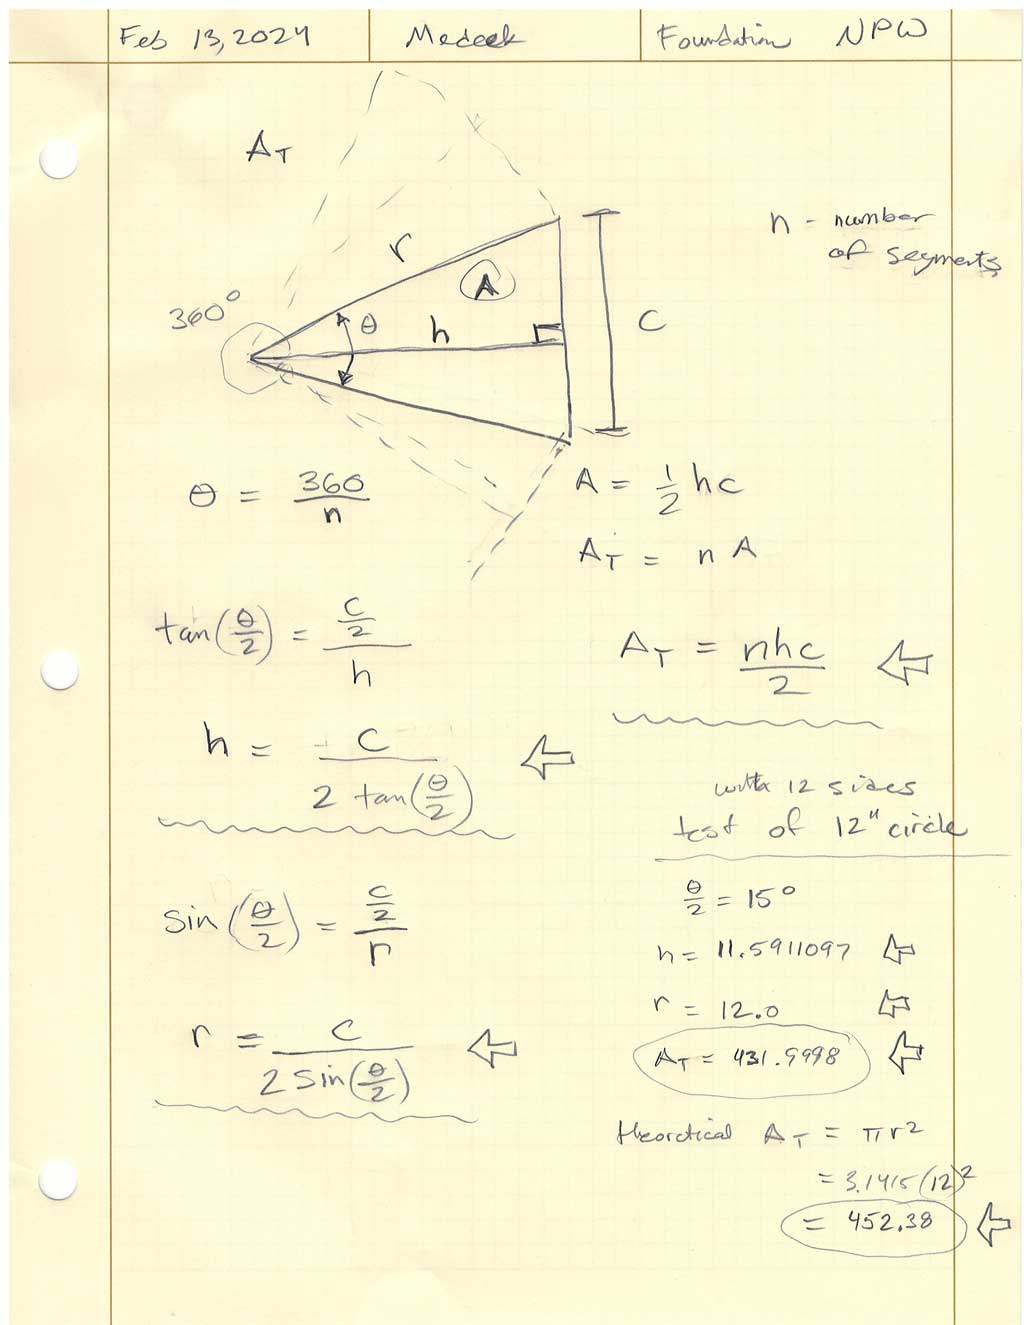 Feb 13, 2024 Medeek Foundation NPW
A_T
n - number
of segments
r
A
360°
θ
h
c
θ = 360/n
A = 1/2 hc
A_T = n A
tan(θ/2) = (c/2)/h
A_T = nhc/2
h = c/(2 tan(θ/2))
with 12 sides
test of 12" circle
sin(θ/2) = (c/2)/r
θ/2 = 15°
h = 11.5911097
r = 12.0
r = c/(2 sin(θ/2))
A_T = 431.9998
theoretical A_T = πr²
= 3.1415(12)²
= 452.38